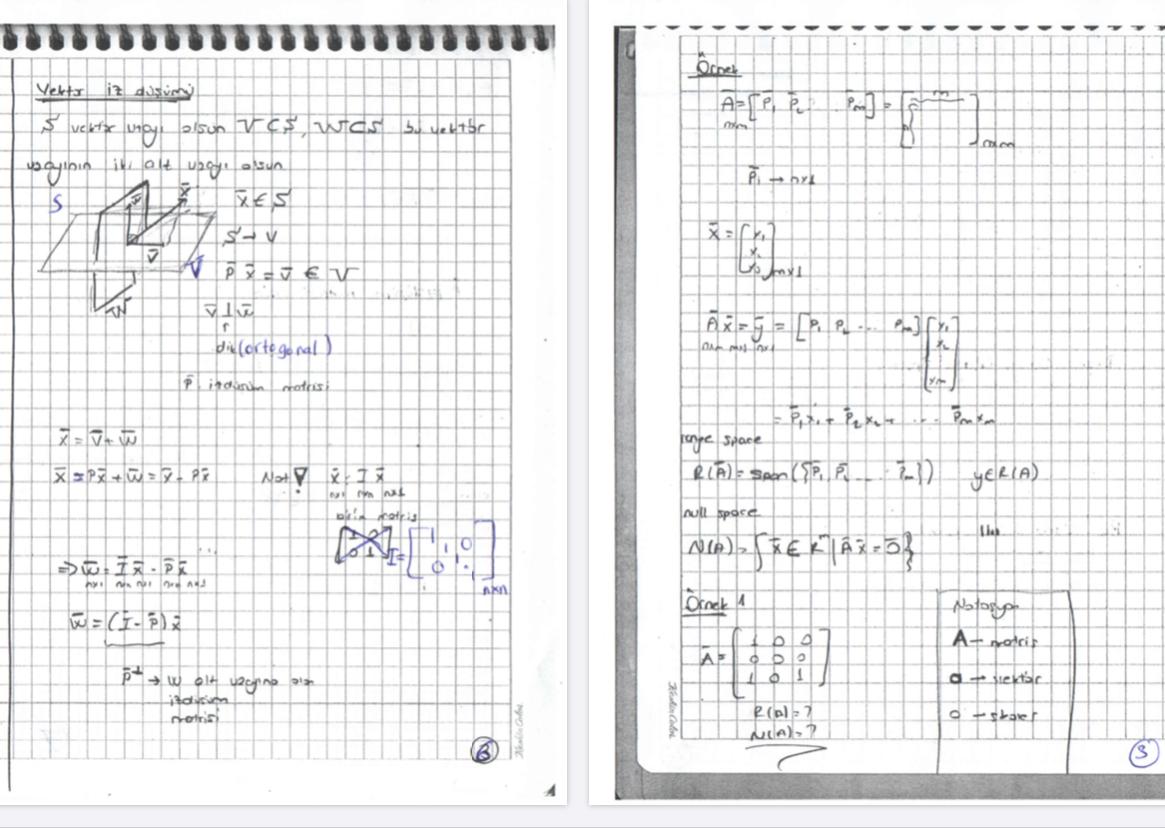 Vektör iz düşümü
S vektör uzayı olsun V⊂S, W⊂S bu vektör
uzayının iki alt uzayı olsun
S
w̄
x̄
v̄
V
W
x̄ ∈ S
S → V
P̄ x̄ = v̄ ∈ V
v̄ ⊥ w̄
dik (ortogonal)
P̄: izdüşüm matrisi
x̄ = v̄ + w̄
x̄ = Px̄ + w̄ = x̄ - Px̄
Not ! x̄ = I x̄
nx1 nxn nx1
birim matris
I = [1 1 0 0 1 . 1] nxn
⇒ w̄ = Ī x̄ - P̄ x̄
nx1 nxn nx1 nxn nx1
w̄ = (Ī - P̄) x̄
P̄⊥ → W alt uzayına olan
izdüşüm
matrisi
6
Örnek
Ā = [P̄1 P̄2 ... P̄m] = [ ] nxm
nxm
P̄1 → nx1
x̄ = [x1 x2 x3] mx1
Ā x̄ = ȳ = [P1 P2 ... Pm] [x1 x2 xm]
nxm mx1 nx1
= P̄1x1 + P̄2x2 + ... P̄m xm
range space
R(Ā) = span({P̄1, P̄2 ... P̄m}) y∈R(A)
null space
N(A) = {x̄ ∈ Rᵐ | Ā x̄ = 0̄}
Örnek 1
Ā = [1 0 0
0 0 0
1 0 1]
R(A) = ?
N(A) = ?
Notasyon
A → matris
a → vektör
a → skaler
5